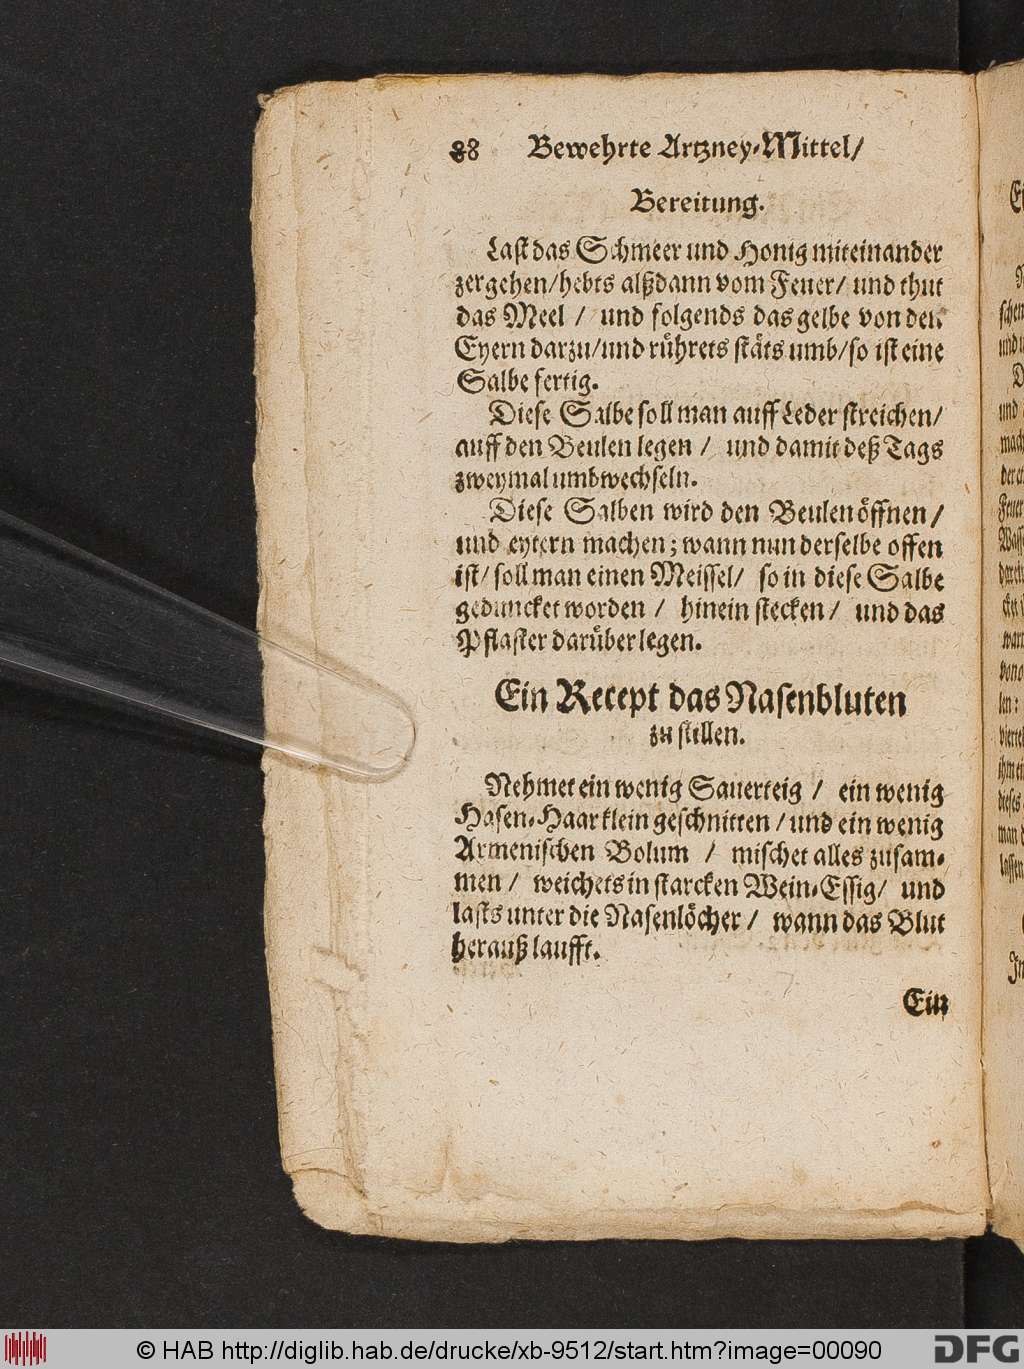 88 Bewehrte Artzney-Mittel/
Bereitung.
Last das Schmeer und Honig miteinander
zergehen/hebts alßdann vom Feuer/ und thut
das Meel / und folgends das gelbe von den
Eyern darzu/und rührets stäts umb/so ist eine
Salbe fertig.
Diese Salbe soll man auff Leder streichen/
auff den Beulen legen / und damit deß Tags
zweymal umbwechseln.
Diese Salben wird den Beulen öffnen/
und eytern machen; wann nun derselbe offen
ist/ soll man einen Meissel/ so in diese Salbe
geduncket worden / hinein stecken/ und das
Pflaster darüber legen.
Ein Recept das Nasenbluten
zu stillen.
Nehmet ein wenig Sauerteig / ein wenig
Hasen-Haar klein geschnitten / und ein wenig
Armenischen Bolum / mischet alles zusam-
men / weichets in starcken Wein-Essig/ und
lasts unter die Nasenlöcher / wann das Blut
herauß laufft.
Ein
© HAB http://diglib.hab.de/drucke/xb-9512/start.htm?image=00090
DFG